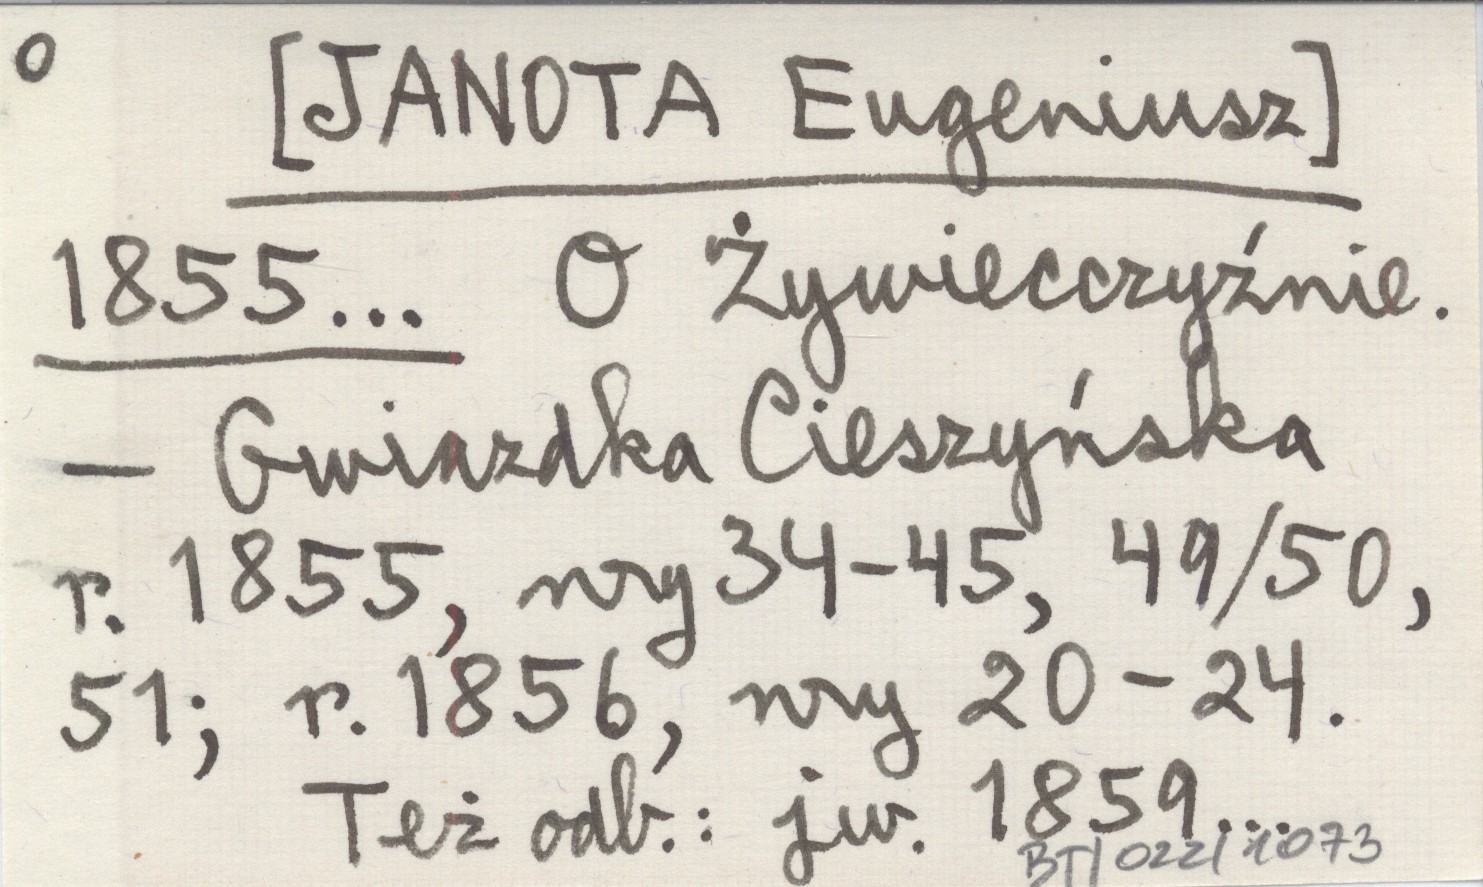 o [JANOTA Eugeniusz]
1855... O Żywiecczyźnie.
– Gwiazdka Cieszyńska
r. 1855, nry 34-45, 49/50,
51; r. 1856, nry 20-24.
Też odb.: jw. 1859...
BT/022/